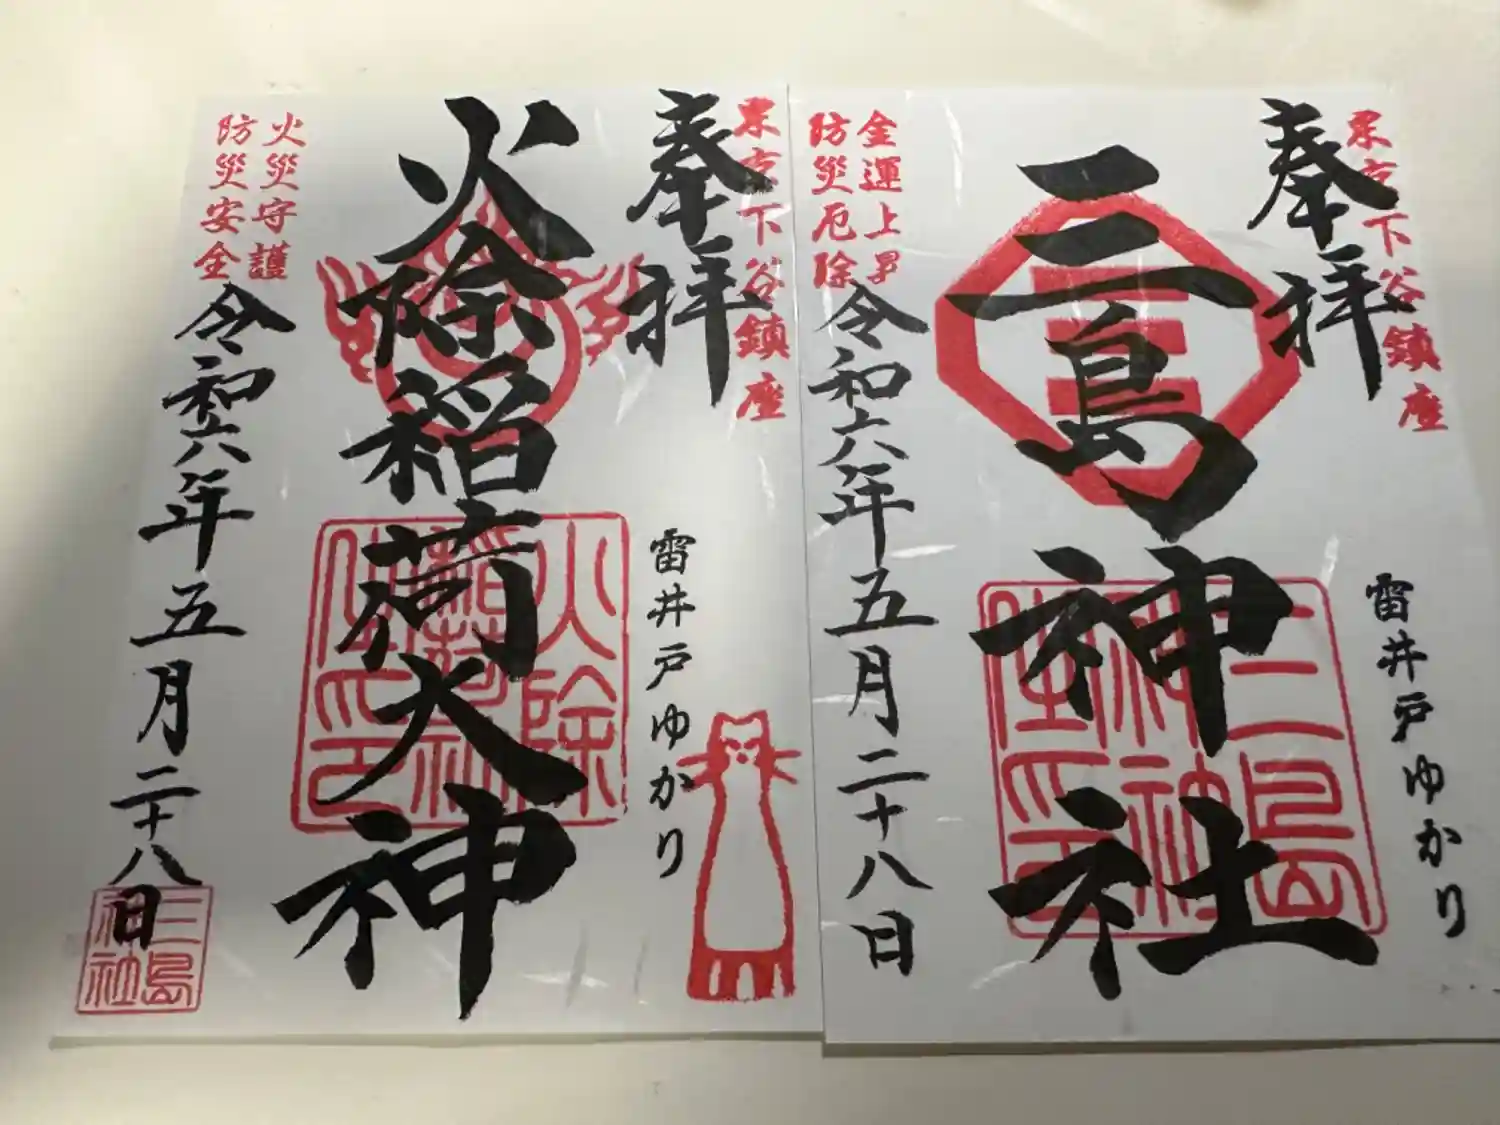 東京下谷鎮座
奉拝
雷井戸ゆかり
三島神社
三島神社
金運上昇
防災厄除
令和六年五月二十八日
東京下谷鎮座
奉拝
雷井戸ゆかり
火除稲荷大神
火除
稲荷社
火災守護
防災安全
令和六年五月二十八日
三島
神社